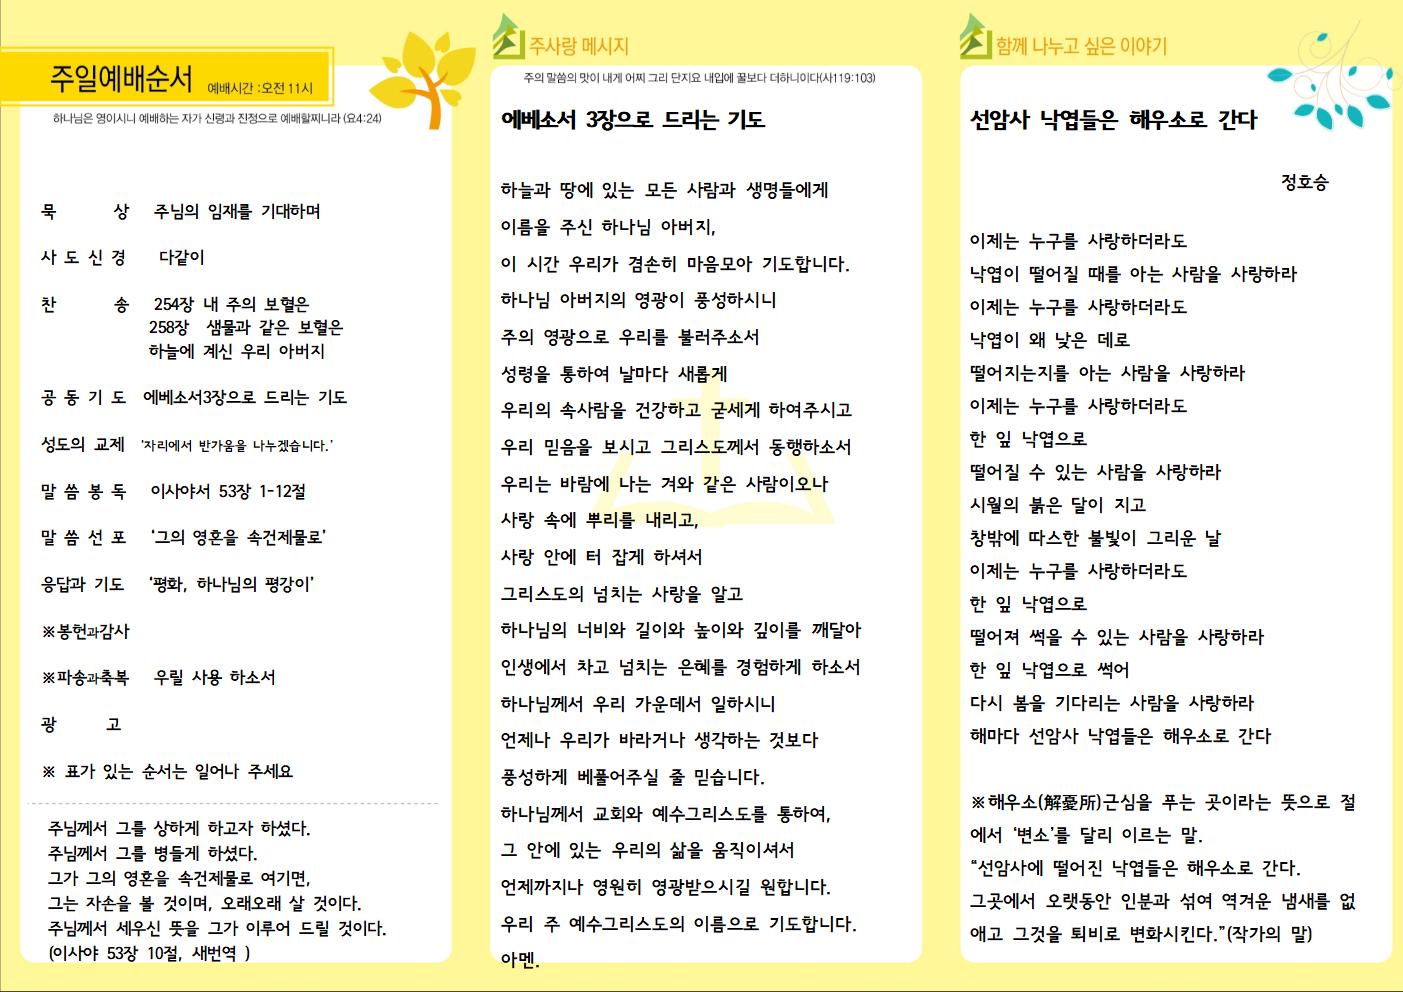 주일예배순서 예배시간 :오전 11시
하나님은 영이시니 예배하는 자가 신령과 진정으로 예배할찌니라 (요4:24)
묵 상 주님의 임재를 기대하며
사 도 신 경 다같이
찬 송 254장 내 주의 보혈은
258장 샘물과 같은 보혈은
하늘에 계신 우리 아버지
공 동 기 도 에베소서3장으로 드리는 기도
성도의 교제 '자리에서 반가움을 나누겠습니다.'
말 씀 봉 독 이사야서 53장 1-12절
말 씀 선 포 '그의 영혼을 속건제물로'
응답과 기도 '평화, 하나님의 평강이'
※봉헌과감사
※파송과축복 우릴 사용 하소서
광 고
※ 표가 있는 순서는 일어나 주세요
주님께서 그를 상하게 하고자 하셨다.
주님께서 그를 병들게 하셨다.
그가 그의 영혼을 속건제물로 여기면,
그는 자손을 볼 것이며, 오래오래 살 것이다.
주님께서 세우신 뜻을 그가 이루어 드릴 것이다.
(이사야 53장 10절, 새번역 )
주사랑 메시지
주의 말씀의 맛이 내게 어찌 그리 단지요 내입에 꿀보다 더하니이다(사119:103)
에베소서 3장으로 드리는 기도
하늘과 땅에 있는 모든 사람과 생명들에게
이름을 주신 하나님 아버지,
이 시간 우리가 겸손히 마음모아 기도합니다.
하나님 아버지의 영광이 풍성하시니
주의 영광으로 우리를 불러주소서
성령을 통하여 날마다 새롭게
우리의 속사람을 건강하고 굳세게 하여주시고
우리 믿음을 보시고 그리스도께서 동행하소서
우리는 바람에 나는 겨와 같은 사람이오나
사랑 속에 뿌리를 내리고,
사랑 안에 터 잡게 하셔서
그리스도의 넘치는 사랑을 알고
하나님의 너비와 길이와 높이와 깊이를 깨달아
인생에서 차고 넘치는 은혜를 경험하게 하소서
하나님께서 우리 가운데서 일하시니
언제나 우리가 바라거나 생각하는 것보다
풍성하게 베풀어주실 줄 믿습니다.
하나님께서 교회와 예수그리스도를 통하여,
그 안에 있는 우리의 삶을 움직이셔서
언제까지나 영원히 영광받으시길 원합니다.
우리 주 예수그리스도의 이름으로 기도합니다.
아멘.
함께 나누고 싶은 이야기
선암사 낙엽들은 해우소로 간다
정호승
이제는 누구를 사랑하더라도
낙엽이 떨어질 때를 아는 사람을 사랑하라
이제는 누구를 사랑하더라도
낙엽이 왜 낮은 데로
떨어지는지를 아는 사람을 사랑하라
이제는 누구를 사랑하더라도
한 잎 낙엽으로
떨어질 수 있는 사람을 사랑하라
시월의 붉은 달이 지고
창밖에 따스한 불빛이 그리운 날
이제는 누구를 사랑하더라도
한 잎 낙엽으로
떨어져 썩을 수 있는 사람을 사랑하라
한 잎 낙엽으로 썩어
다시 봄을 기다리는 사람을 사랑하라
해마다 선암사 낙엽들은 해우소로 간다
※해우소(解憂所)근심을 푸는 곳이라는 뜻으로 절
에서 '변소'를 달리 이르는 말.
"선암사에 떨어진 낙엽들은 해우소로 간다.
그곳에서 오랫동안 인분과 섞여 역겨운 냄새를 없
애고 그것을 퇴비로 변화시킨다."(작가의 말)